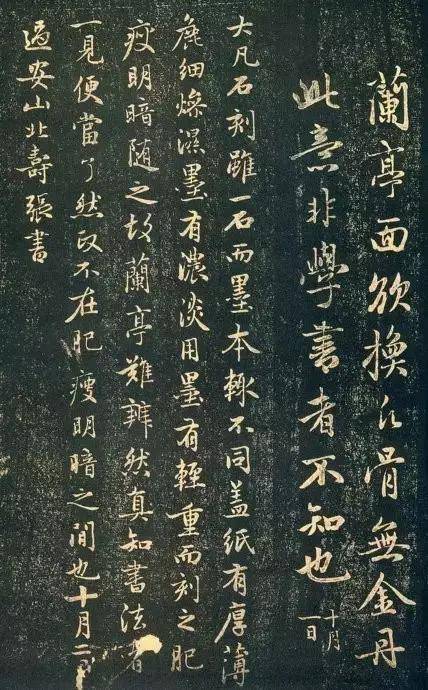 蘭亭面欲換凡骨無金丹
此意非學書者不知也
十月
一日
大凡石刻雖一石而墨本輙不同盖紙有厚薄
麄細燥濕墨有濃淡用墨有輕重而刻之肥
瘦明暗随之故蘭亭難辨然真知書法者
一見便當了然政不在肥瘦明暗之間也十月二日
過安山北壽張書